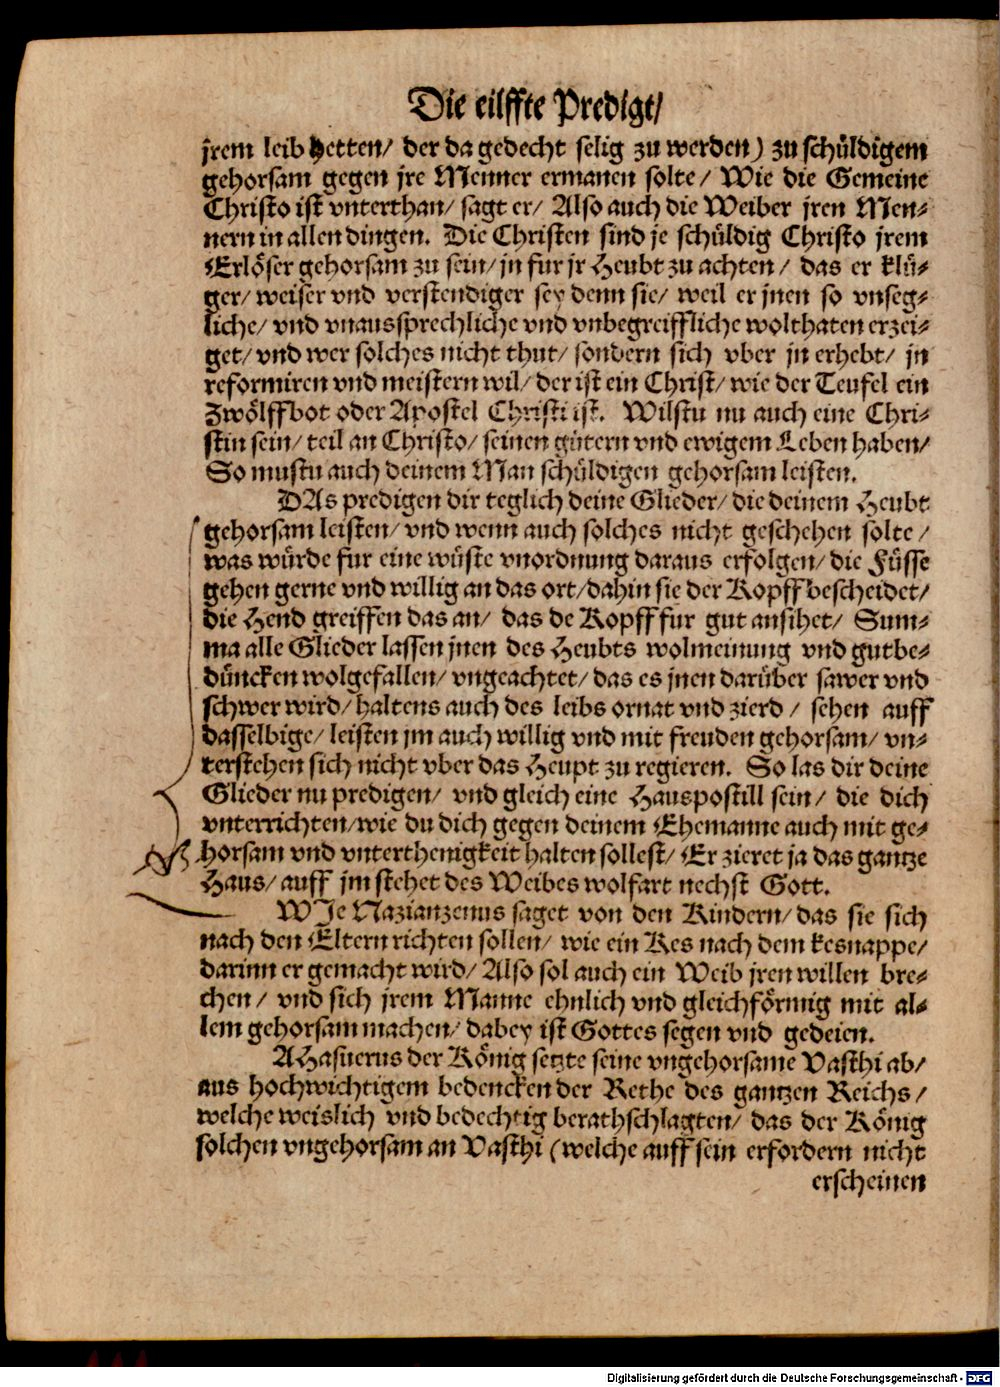 Die eilffte Predigt/
jrem leib hetten/ der da gedecht selig zu werden) zu schüldigem
gehorsam gegen jre Menner ermanen solte/ Wie die Gemeine
Christo ist vnterthan/ sagt er/ Also auch die Weiber jren Men-
nern in allen dingen. Die Christen sind je schüldig Christo jrem
Erlöser gehorsam zu sein/ jn fur jr Heubt zu achten/ das er klü-
ger/ weiser vnd verstendiger sey denn sie/ weil er jnen so vnseg-
liche/ vnd vnaussprechliche vnd vnbegreiffliche wolthaten erzei-
get/ vnd wer solches nicht thut/ sondern sich vber jn erhebt/ jn
reformiren vnd meistern wil/ der ist ein Christ/ wie der Teufel ein
Zwölffbot oder Apostel Christi ist. Wilstu nu auch eine Chri-
stin sein/ teil an Christo/ seinen gütern vnd ewigem Leben haben/
So mustu auch deinem Man schüldigen gehorsam leisten.
DAs predigen dir teglich deine Glieder/ die deinem Heubt
gehorsam leisten/ vnd wenn auch solches nicht geschehen solte/
was würde fur eine wüste vnordnung daraus erfolgen/ die Füsse
gehen gerne vnd willig an das ort/ dahin sie der Kopff bescheidet/
die Hend greiffen das an/ das de Kopff fur gut ansihet/ Sum-
ma alle Glieder lassen jnen des Heubts wolmeinung vnd gutbe-
düncken wolgefallen/ vngeachtet/ das es jnen darüber sawer vnd
schwer wird/ haltens auch des leibs ornat vnd zierd/ sehen auff
dasselbige/ leisten jm auch willig vnd mit freuden gehorsam/ vn-
terstehen sich nicht vber das Heupt zu regieren. So las dir deine
Glieder nu predigen/ vnd gleich eine Hauspostill sein/ die dich
vnterrichten/ wie du dich gegen deinem Ehemanne auch mit ge-
horsam vnd vnterthenigkeit halten sollest/ Er zieret ja das gantze
Haus/ auff jm stehet des Weibes wolfart nechst Gott.
WJe Nazianzenus saget von den Kindern/ das sie sich
nach den Eltern richten sollen/ wie ein Kes nach dem kesnappe/
darinn er gemacht wird/ Also sol auch ein Weib jren willen bre-
chen/ vnd sich jrem Manne ehnlich vnd gleichförmig mit al-
lem gehorsam machen/ dabey ist Gottes segen vnd gedeien.
AHasuerus der König setzte seine vngehorsame Vasthi ab/
aus hochwichtigem bedencken der Rethe des gantzen Reichs/
welche weislich vnd bedechtig berathschlagten/ das der König
solchen vngehorsam an Vasthi (welche auff sein erfordern nicht
erscheinen
Digitalisierung gefördert durch die Deutsche Forschungsgemeinschaft - DFG